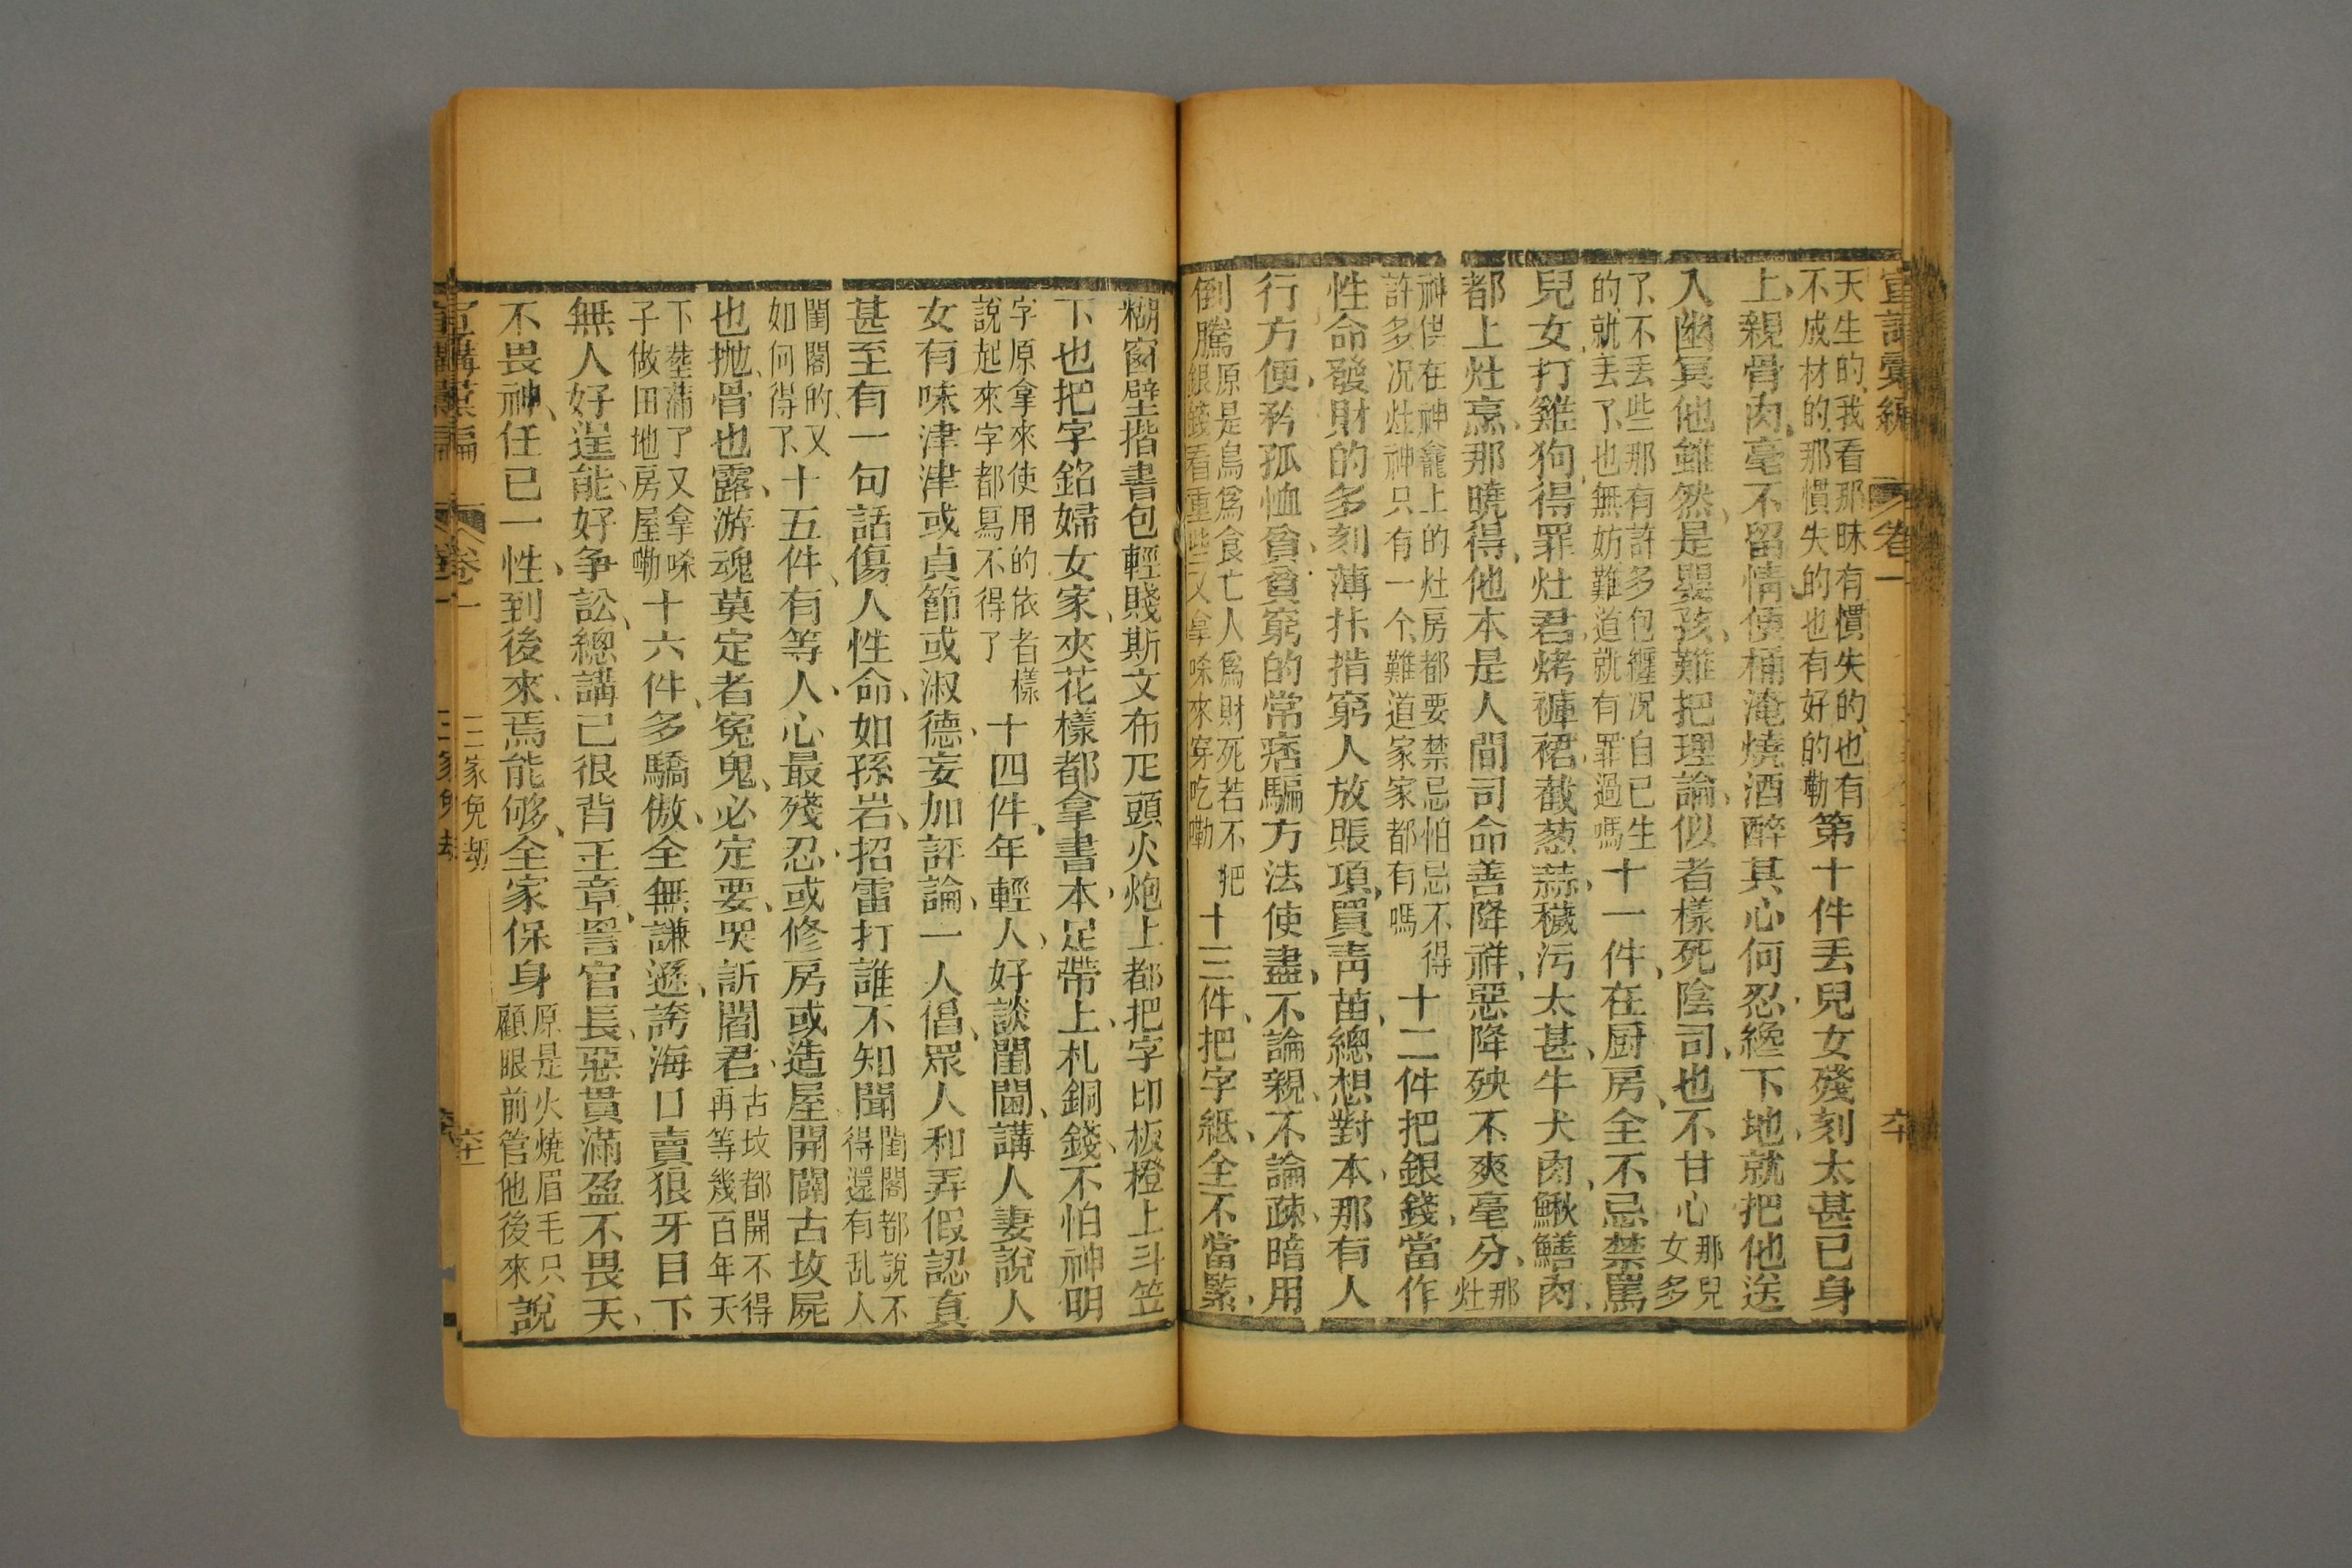 宣講彙編 卷一 六十
天生的、我看那昧有慣失的、也有不成材的、那慣失的也有好的嘞第十件丟兒女殘刻太甚己身
上、親骨肉、毫不留情、便桶淹燒酒醉其心何忍、纔下地、就把他送
入幽冥他雖然、是嬰孩、難把理論、似者樣死陰司、也不甘心那兒女多
了、不丟些那有許多包纏况自己生的、就丟了、也無妨難道就有罪過嗎十一件、在厨房、全不忌禁駡
兒女、打雞狗、得罪灶君、烤褲裙、截葱蒜、穢污太甚、牛犬肉、鰍鱔肉、
都上灶烹、那曉得、他本是人間司命善降祥、惡降殃不爽毫分、那灶
神供在神龕上的灶房都要禁忌怕忌不得許多况灶神只有一个、難道家家都有嗎十二件把銀錢、當作
性命發財的多刻薄抺掯窮人放賬項、買靑苗、總想對本、那有人
行方便、矜孤恤貧、貧窮的常痞騙方法使盡、不論親、不論疎、暗用
倒騰原是鳥爲食亡人爲財死若不把銀錢看重些又拿啋來穿吃嘞十三件、把字紙、全不當緊、
糊窗壁揩書包輕賤斯文布疋頭火炮上都把字印板橙上斗笠
下也把字銘婦女家、夾花樣都拿書本、足帶上、札銅錢、不怕神明
字原拿來使用的依者樣說起來字都寫不得了十四件、年輕人、好談閨閫、講人妻說人
女有味津津或貞節或淑德、妄加評論、一人倡、眾人和弄假認真
甚至有一句話傷人性命、如孫岩、招雷打誰不知聞閨閣都說不得還有乱人
閨閣的、又如何得了、十五件、有等人、心最殘忍、或修房或造屋開闢古坟屍
也抛、骨也露、游魂莫定者冤鬼、必定要、哭訴閻君、古坟都開不得再等幾百年天
下塟滿了又拿啋子做田地房屋嘞十六件、多驕傲、全無謙遜、誇海口賣狠牙目下
無人好逞能、好争訟、總講己很背王章、詈官長、惡貫滿盈不畏天、
不畏神、任己一性、到後來、焉能够、全家保身原是火燒眉毛只顧眼前管他後來說
宣講彙編 卷一 三家免劫 六十一